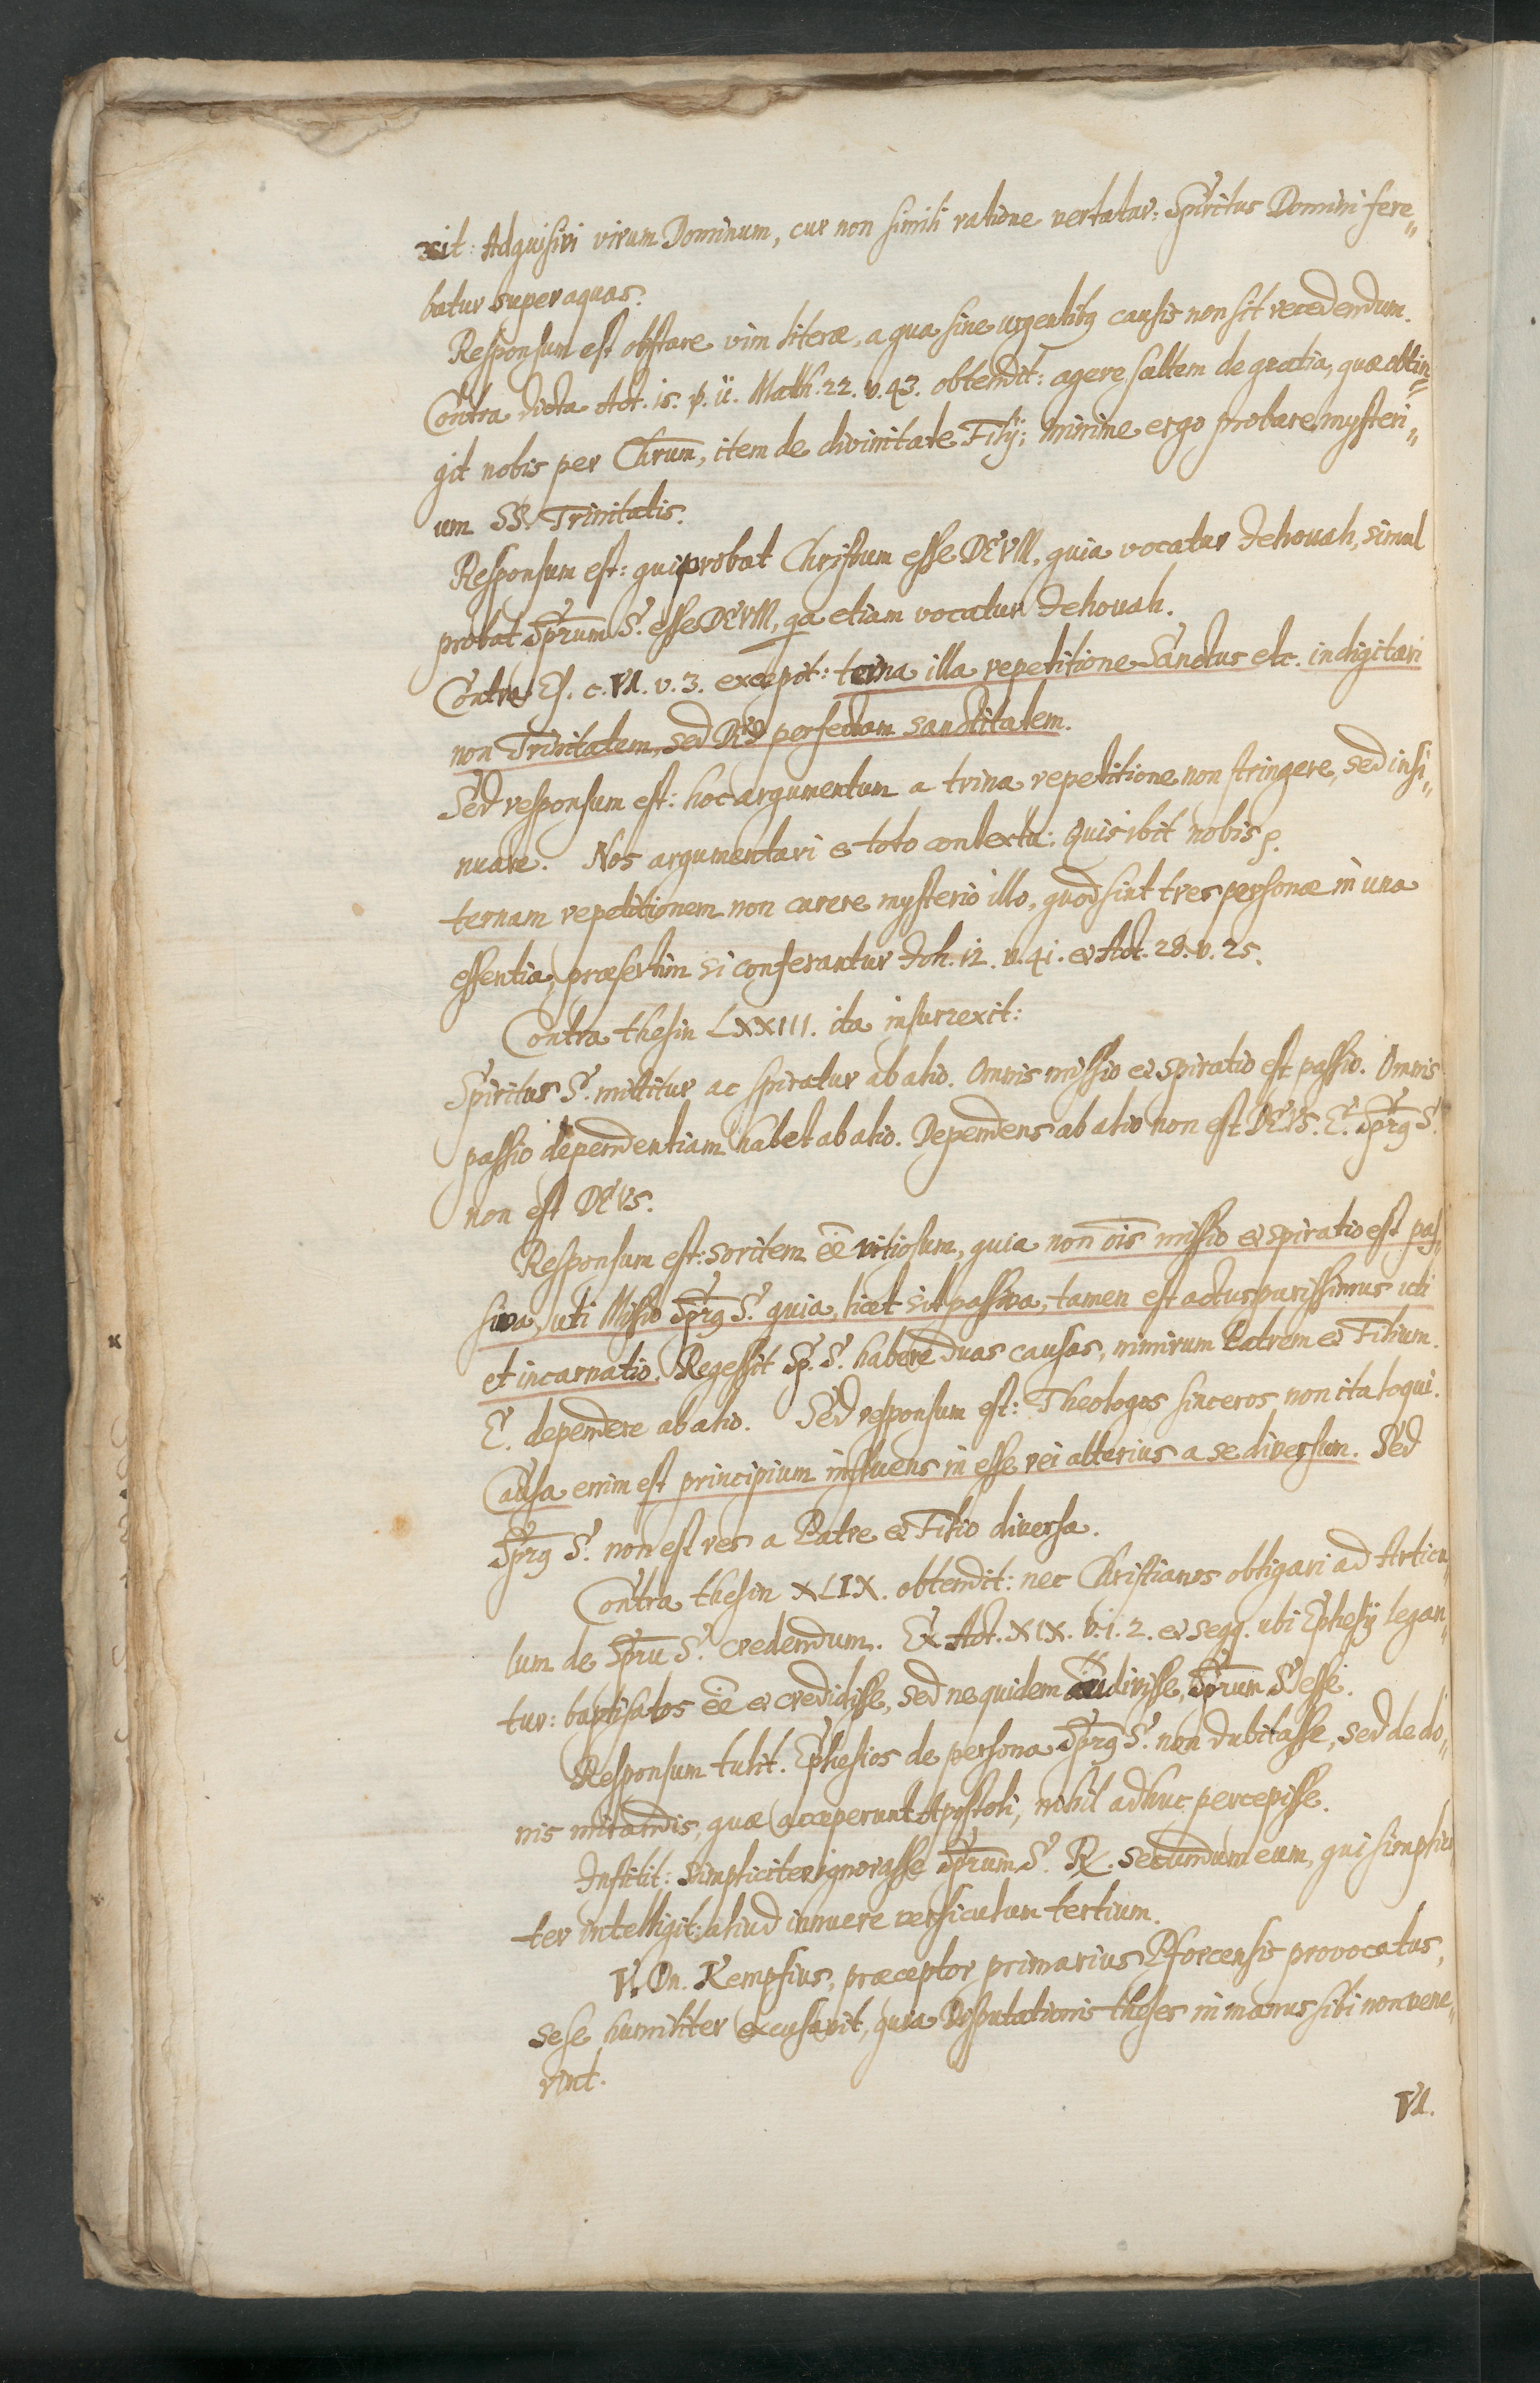 xit: Adquisivi virum Dominum, cur non simili ratione vertatur: Spiritus Domini fere„
batur super aquas.
Responsum est obstare vim literæ, a qua sine urgentibꝫ causis non sit recedendum.
Contra dicta Act. 15. v. 11. Math. 22. v. 43. obtendit: agere saltem de gratia, quæ obtin„
git nobis per Chrūm, item de divinitate Filij; minime ergo probare mysteri„
um SS. Trinitatis.
Responsum est: qui probat Christum esse DEVM, quia vocatur Jehovah, simul
probat Sp̄rum S. esse DEVM, qa etiam vocatur Jehovah.
Contra Es. c. VI. v. 3. excepit: terna illa repetitione Sanctus etc. indigitari
non Trinitatem, sed DEI perfectam sanctitatem.
Sed responsum est: hoc argumentum a trina repetitione non stringere, sed insi„
nuare. Nos argumentari e toto contextu: Quis ibit nobis ꝑ.
ternam repetitionem non carere mysterio illo, quod sint tres personæ in una
essentia, præsertim si conferantur Joh. 12. v. 41. et Act. 28. v. 25.
Contra thesin LXXIII. ita insurrexit:
Spiritus S. mittitur ac spiratur ab alio. Omnis missio et spiratio est passio. Omnis
passio dependentiam habet ab alio. Dependens ab alio non est DEVS. E. Sp̄rꝫ S.
non est DEVS.
Responsum est: soritem ēē vitiosum, quia non ōis missio et spiratio est pas„
siva, uti Missio Sp̄rꝫ S. quia, licet sit passiva, tamen est actus purissimus uti
et incarnatio. Regessit Sp. S. habere duas causas, nimirum Patrem et Filium.
E. dependere ab alio. Sed responsum est: Theologos sinceros non ita loqui.
Causa enim est principium influens in esse rei alterius a se diversum. Sed
Sp̄rꝫ S. non est res a Patre et Filio diversa.
Contra thesin XLIX. obtendit: nec Christianos obligari ad Articu„
lum de Sp̄ru S. credendum. Ex Act. XIX. v. 1. 2. et seqq. ubi Ephesij legan„
tur: baptisatos ēē et credidisse, sed ne quidem audivisse, Sp̄rum S. esse.
Responsum tulit. Ephesios de persona Sp̄rꝫ S. non dubitasse, sed de do„
nis mirandis, quæ acceperunt Apostoli, nihil adhuc percepisse.
Institit: simpliciter ignorasse Sp̄rum S. Rx. secundum eum, qui simplici
ter intelligit: aliud innuere versiculum tertium.
V. Dn. Kempfius, præceptor primarius Pforcensis provocatus,
sese humiliter excusavit, quia Disputationis theses in manus sibi non vene„
rint.
VI.